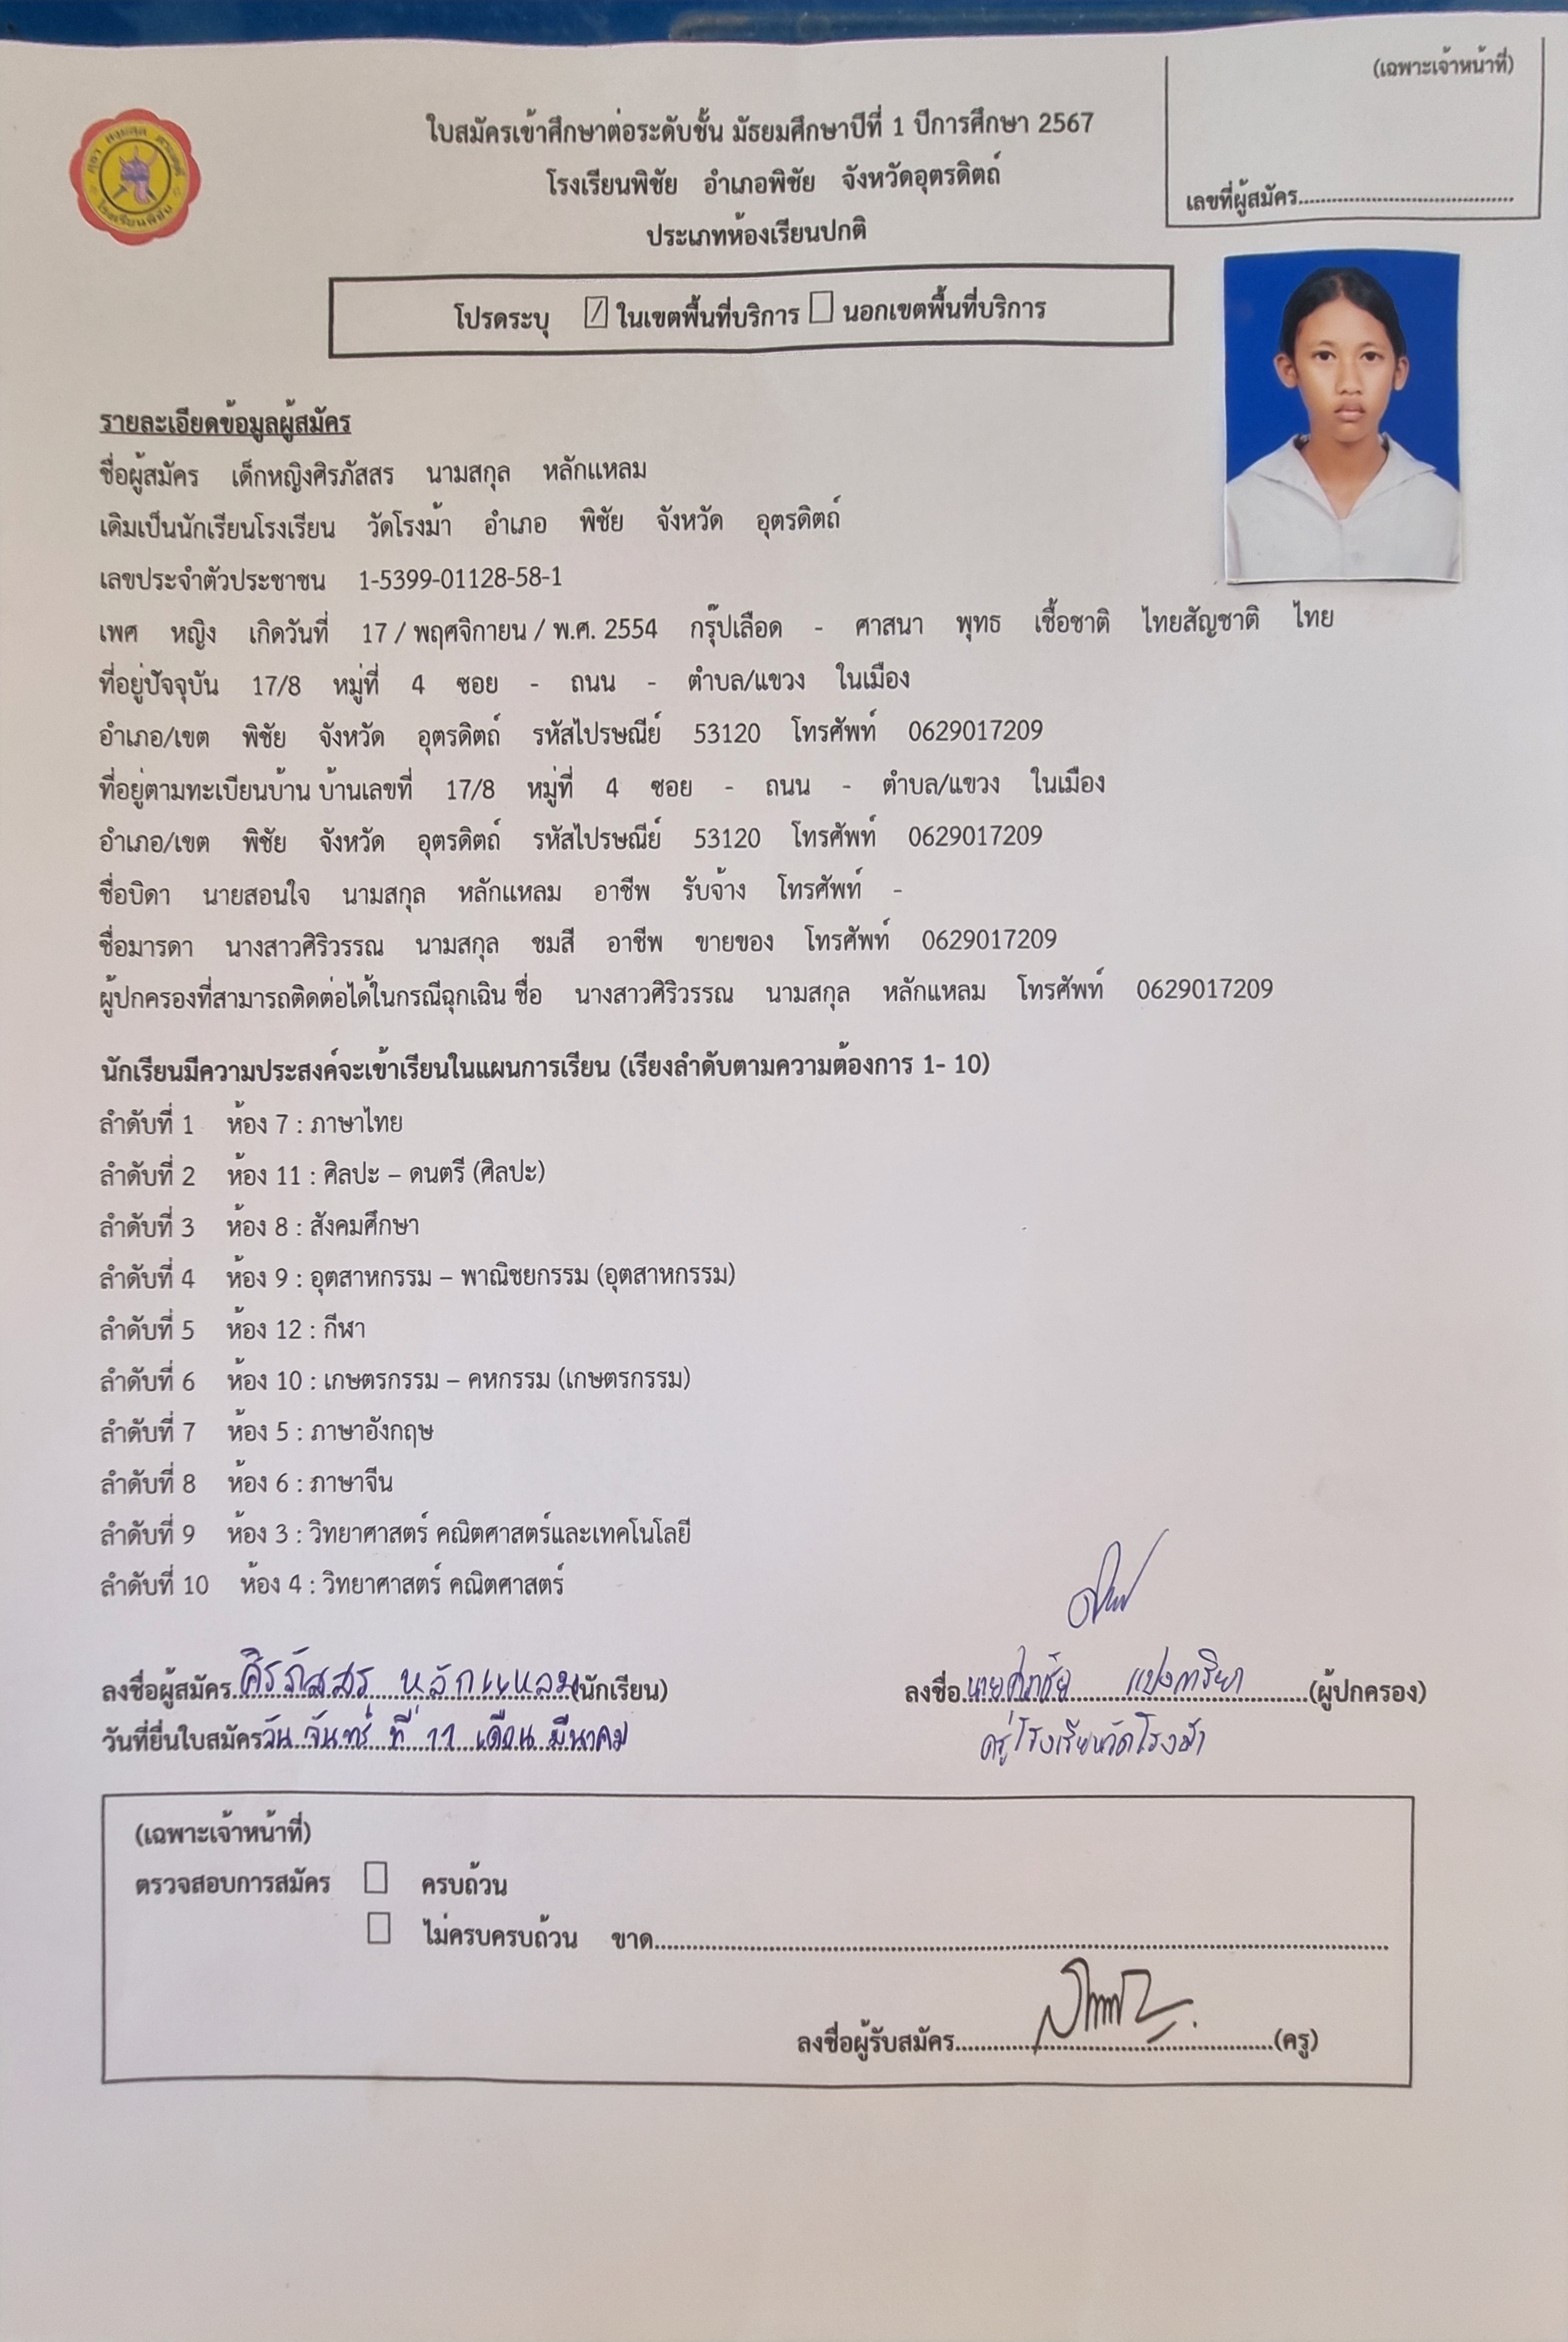 (เฉพาะเจ้าหน้าที่)
เลขที่ผู้สมัคร
โรงเรียนพิชัย
ใบสมัครเข้าศึกษาต่อระดับชั้น มัธยมศึกษาปีที่ 1 ปีการศึกษา 2567
โรงเรียนพิชัย อำเภอพิชัย จังหวัดอุตรดิตถ์
ประเภทห้องเรียนปกติ
โปรดระบุ ในเขตพื้นที่บริการ นอกเขตพื้นที่บริการ
รายละเอียดข้อมูลผู้สมัคร
ชื่อผู้สมัคร เด็กหญิงศิรภัสสร นามสกุล หลักแหลม
เดิมเป็นนักเรียนโรงเรียน วัดโรงม้า อำเภอ พิชัย จังหวัด อุตรดิตถ์
เลขประจำตัวประชาชน 1-5399-01128-58-1
เพศ หญิง เกิดวันที่ 17 / พฤศจิกายน / พ.ศ. 2554 กรุ๊ปเลือด - ศาสนา พุทธ เชื้อชาติ ไทยสัญชาติ ไทย
ที่อยู่ปัจจุบัน 17/8 หมู่ที่ 4 ซอย - ถนน - ตำบล/แขวง ในเมือง
อำเภอ/เขต พิชัย จังหวัด อุตรดิตถ์ รหัสไปรษณีย์ 53120 โทรศัพท์ 0629017209
ที่อยู่ตามทะเบียนบ้าน บ้านเลขที่ 17/8 หมู่ที่ 4 ซอย - ถนน - ตำบล/แขวง ในเมือง
อำเภอ/เขต พิชัย จังหวัด อุตรดิตถ์ รหัสไปรษณีย์ 53120 โทรศัพท์ 0629017209
ชื่อบิดา นายสอนใจ นามสกุล หลักแหลม อาชีพ รับจ้าง โทรศัพท์ -
ชื่อมารดา นางสาวศิริวรรณ นามสกุล ชมสี อาชีพ ขายของ โทรศัพท์ 0629017209
ผู้ปกครองที่สามารถติดต่อได้ในกรณีฉุกเฉิน ชื่อ นางสาวศิริวรรณ นามสกุล หลักแหลม โทรศัพท์ 0629017209
นักเรียนมีความประสงค์จะเข้าเรียนในแผนการเรียน (เรียงลำดับตามความต้องการ 1- 10)
ลำดับที่ 1 ห้อง 7 : ภาษาไทย
ลำดับที่ 2 ห้อง 11 : ศิลปะ – ดนตรี (ศิลปะ)
ลำดับที่ 3 ห้อง 8 : สังคมศึกษา
ลำดับที่ 4 ห้อง 9 : อุตสาหกรรม – พาณิชยกรรม (อุตสาหกรรม)
ลำดับที่ 5 ห้อง 12 : กีฬา
ลำดับที่ 6 ห้อง 10 : เกษตรกรรม – คหกรรม (เกษตรกรรม)
ลำดับที่ 7 ห้อง 5 : ภาษาอังกฤษ
ลำดับที่ 8 ห้อง 6 : ภาษาจีน
ลำดับที่ 9 ห้อง 3 : วิทยาศาสตร์ คณิตศาสตร์และเทคโนโลยี
ลำดับที่ 10 ห้อง 4 : วิทยาศาสตร์ คณิตศาสตร์
ลงชื่อผู้สมัคร ศิรภัสสร หลักแหลม (นักเรียน) ลงชื่อ (ผู้ปกครอง)
วันที่ยื่นใบสมัคร วัน จันทร์ ที่ 11 เดือน มีนาคม ครูโรงเรียนวัดโรงม้า
(เฉพาะเจ้าหน้าที่)
ตรวจสอบการสมัคร ครบถ้วน
ไม่ครบครบถ้วน ขาด
ลงชื่อผู้รับสมัคร (ครู)